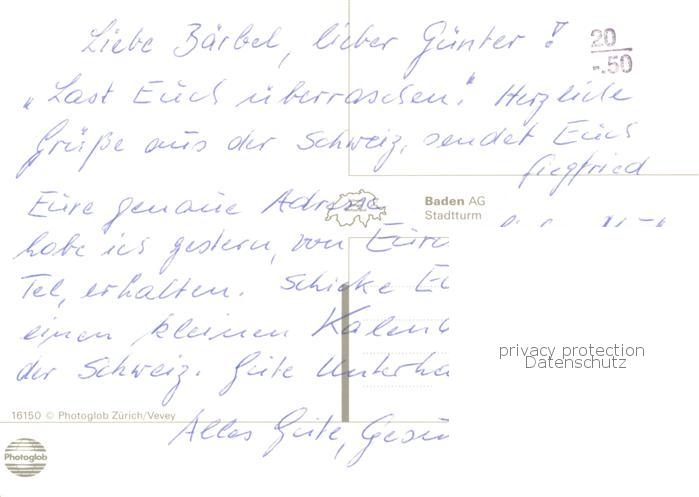 Liebe Bärbel, lieber Günter!
20
-.50
"Last Euch überraschen." Herzliche
Grüße aus der Schweiz, sendet Euch
Siegfried
Eure genaue Adresse
Baden AG
Stadtturm
habe ich gestern, von Eure
Tel, erhalten. Schicke
einen kleinen
der Schweiz. Gute
privacy protection
Datenschutz
16150 © Photoglob Zürich/Vevey
Alles Gute,
Photoglob